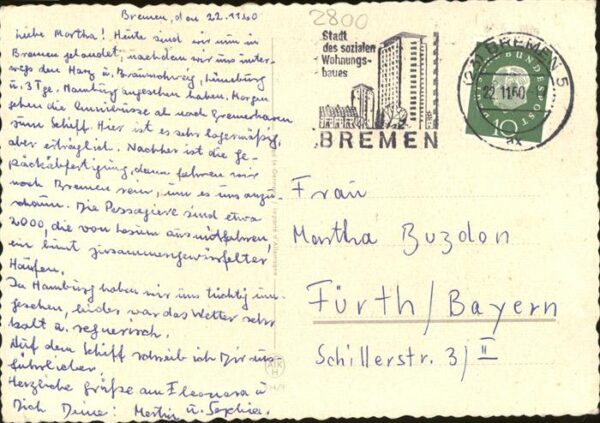 Bremen, den 22.11.60
Liebe Martha! Heute sind wir nun in
Bremen gelandet, nachdem wir uns unter-
wegs den Harz u. Braunschweig, Lüneburg
u. 3 Tge. Hamburg angesehen haben. Morgen
gehen die Omnibüsse ab nach Bremerhaven
zum Schiff. Hier ist es sehr lagermäßig,
aber erträglich. Nachher ist die Ge-
päckabfertigung, dann fahren wir
nach Bremen rein, um es uns anzu-
schaun. Die Passagiere sind etwa
2000, die von hier aus mitfahren,
ein bunt zusammengewürfelter
Haufen.
In Hamburg haben wir uns tüchtig um-
gesehen, leider war das Wetter sehr
kalt u. regnerisch.
Auf dem Schiff schreib ich Dir aus-
führlicher.
Herzliche Grüße an Eleonora u
Dich Deine: Martin u. Sophia.
2800
Stadt
des sozialen
Wohnungs-
baues
BREMEN
(23) BREMEN 5
22.11.60
BUNDESPOST
10
Frau
Martha Buzdon
Fürth/Bayern
Schillerstr. 3/II